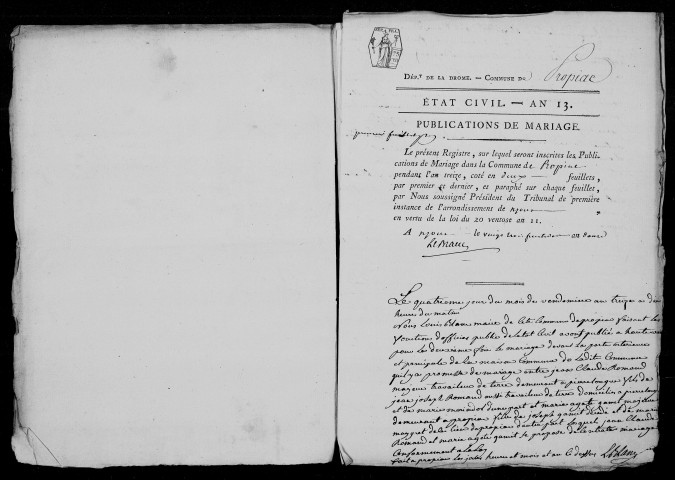 Dép.t de la Drome. — Commune de Propiac
ÉTAT CIVIL. — AN 13.
PUBLICATIONS DE MARIAGE.
premier feuillet
Le présent Registre, sur lequel seront inscrites les Publi-
cations de Mariage dans la Commune de Propiac
pendant l'an treize, coté en deux feuillets,
par premier et dernier, et paraphé sur chaque feuillet,
par Nous soussigné Président du Tribunal de première
instance de l'arrondissement de nyons
en vertu de la loi du 20 ventose an 11.
A nyons le vingt trois fructidor an douze
Le quatrieme jour du mois de vendemiere an treize a dix
heure du matin
Nous Louis blanc maire de Cete Commune de propiac faisant les
fonction d'officier public de letat Civil avons publié a haute voix
pour la deuxieme fois le mariage devant la porte exterieure
et principale de la maison Commune de ladit Commune
qu'il y a promesse de mariage entre jean Claude Romand
majeur travailleur de terre demeurant a pierrelongue fils de
jean joseph Romand aussi travailleur de terre domicilie a pierrelongue
et de marie dune part et marie agate
demeurant a propiac fille de joseph et de marie
de ce lieu de propiac dautre part lesquel jean Claude
Romand et marie agate se propose de mariage
Conformement a la Loi
fait a propiac les jour heure et mois et an Ci dessus LsBlanc